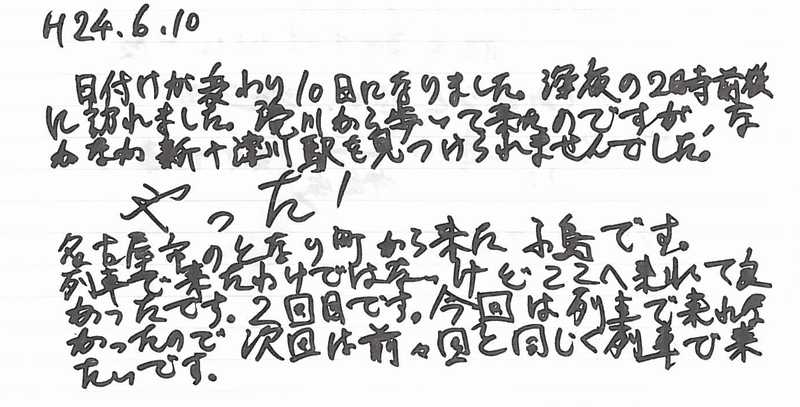 H24.6.10
日付けが変わり10日になりました。深夜の2時前後
に訪れました。滝川から歩いて来たのですが、な
かなか新十津川駅を見つけられませんでした。
やった!
名古屋市のとなり町から来た小島です。
列車で来たわけではないけどここへ来れて良
かったです。2回目です。今回は列車で来れな
かったので次回は前々回と同じく列車で来
たいです。